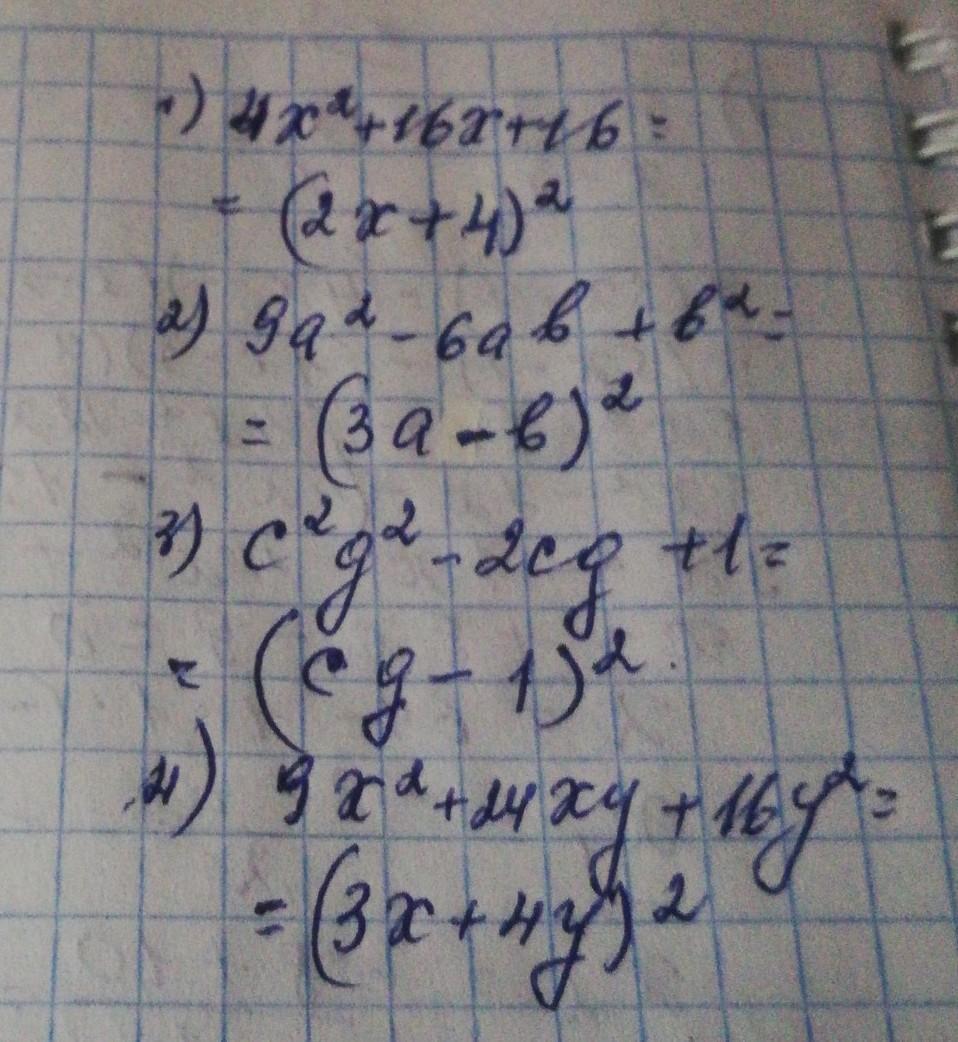 1) 4x²+16x+16=
= (2x+4)²
2) 9a² - 6ab + b² =
= (3a - b)²
3) c²g² - 2cg + 1 =
= (cg - 1)².
4) 9x² + 24xy + 16y² =
= (3x + 4y)²